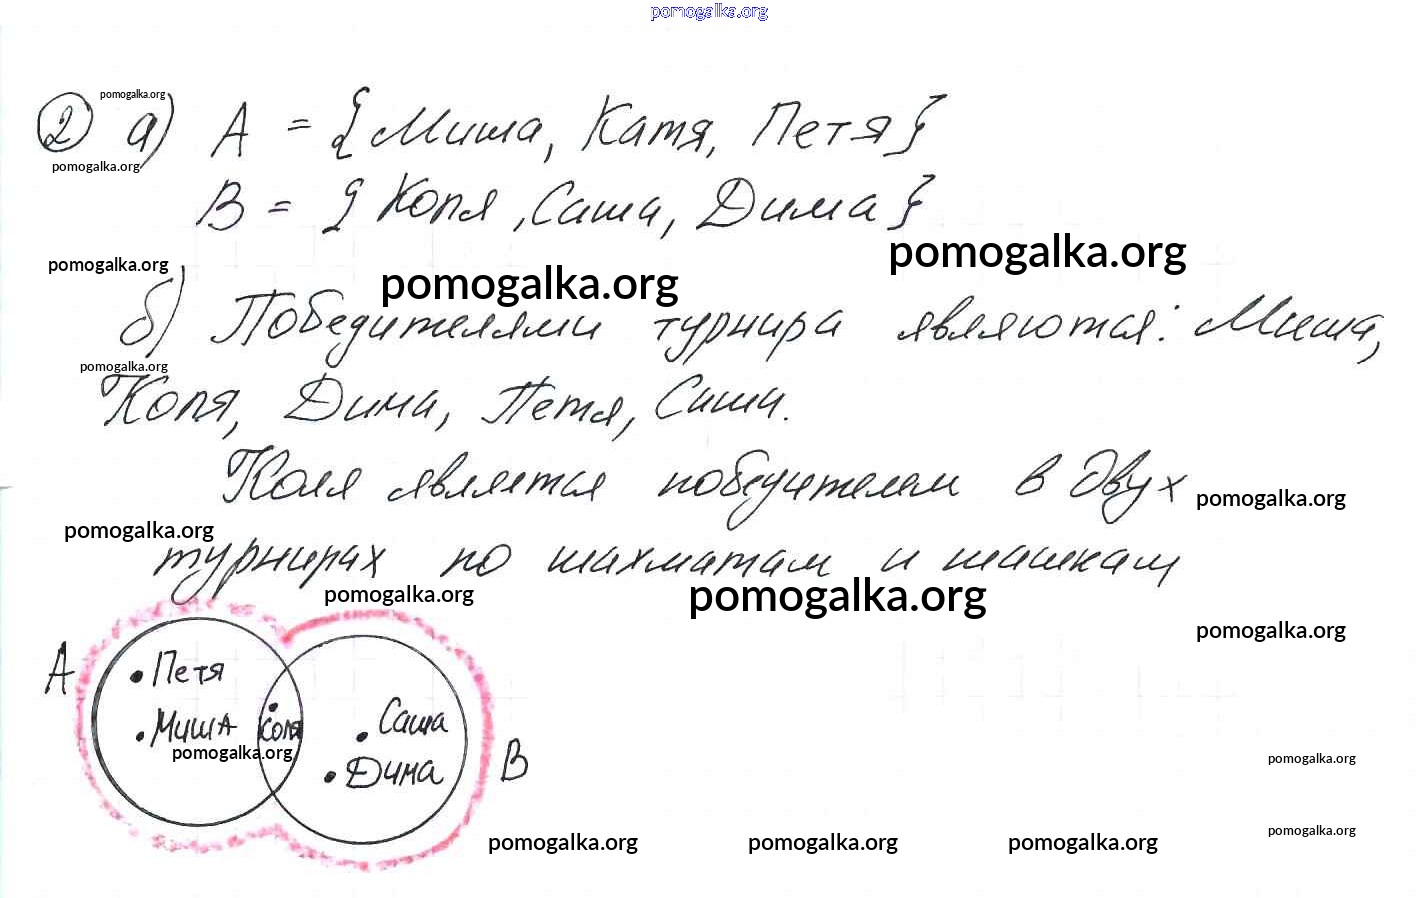 pomogalka.org
pomogalka.org
② а) А = {Миша, Катя, Петя}
pomogalka.org
В = {Коля, Саша, Дима}
pomogalka.org pomogalka.org pomogalka.org
б) Победителями турнира являются: Миша,
pomogalka.org
Коля, Дима, Петя, Саша.
Коля является победителем в двух
pomogalka.org
pomogalka.org
турнирах по шахматам и шашкам
pomogalka.org pomogalka.org
pomogalka.org
А
• Петя
• Миша
• Коля
• Саша
pomogalka.org
• Дима
В
pomogalka.org
pomogalka.org
pomogalka.org pomogalka.org pomogalka.org